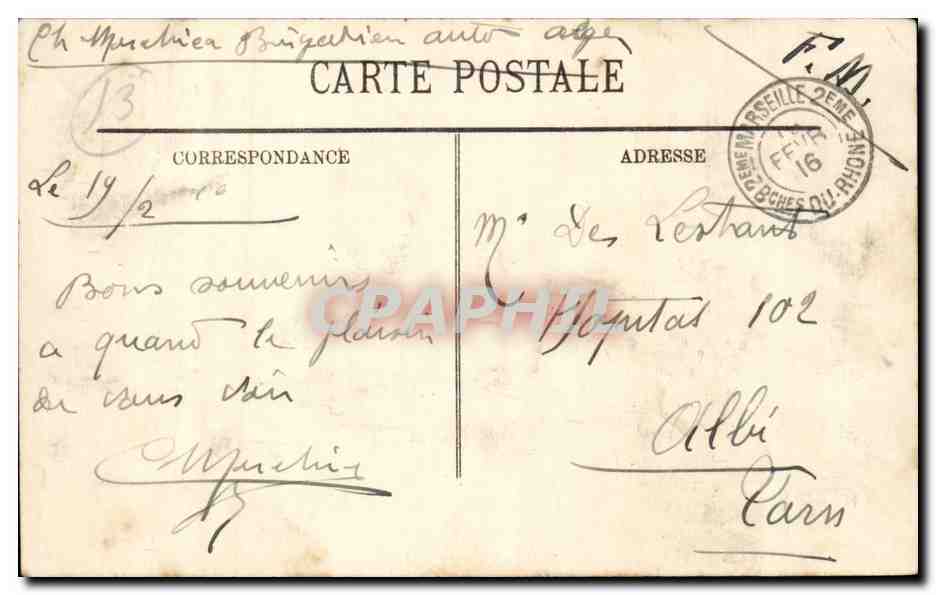 Ch Brigadier auto alger
CARTE POSTALE
F.M.
13
MARSEILLE 2EME
2EME
FEVR
16
BCHES DU-RHONE
CORRESPONDANCE
ADRESSE
Le 19/2
Bons souvenirs
a quand le plaisir
de vous voir
Mr Des
Hopital 102
Albi
Tarn
CPAPHIL